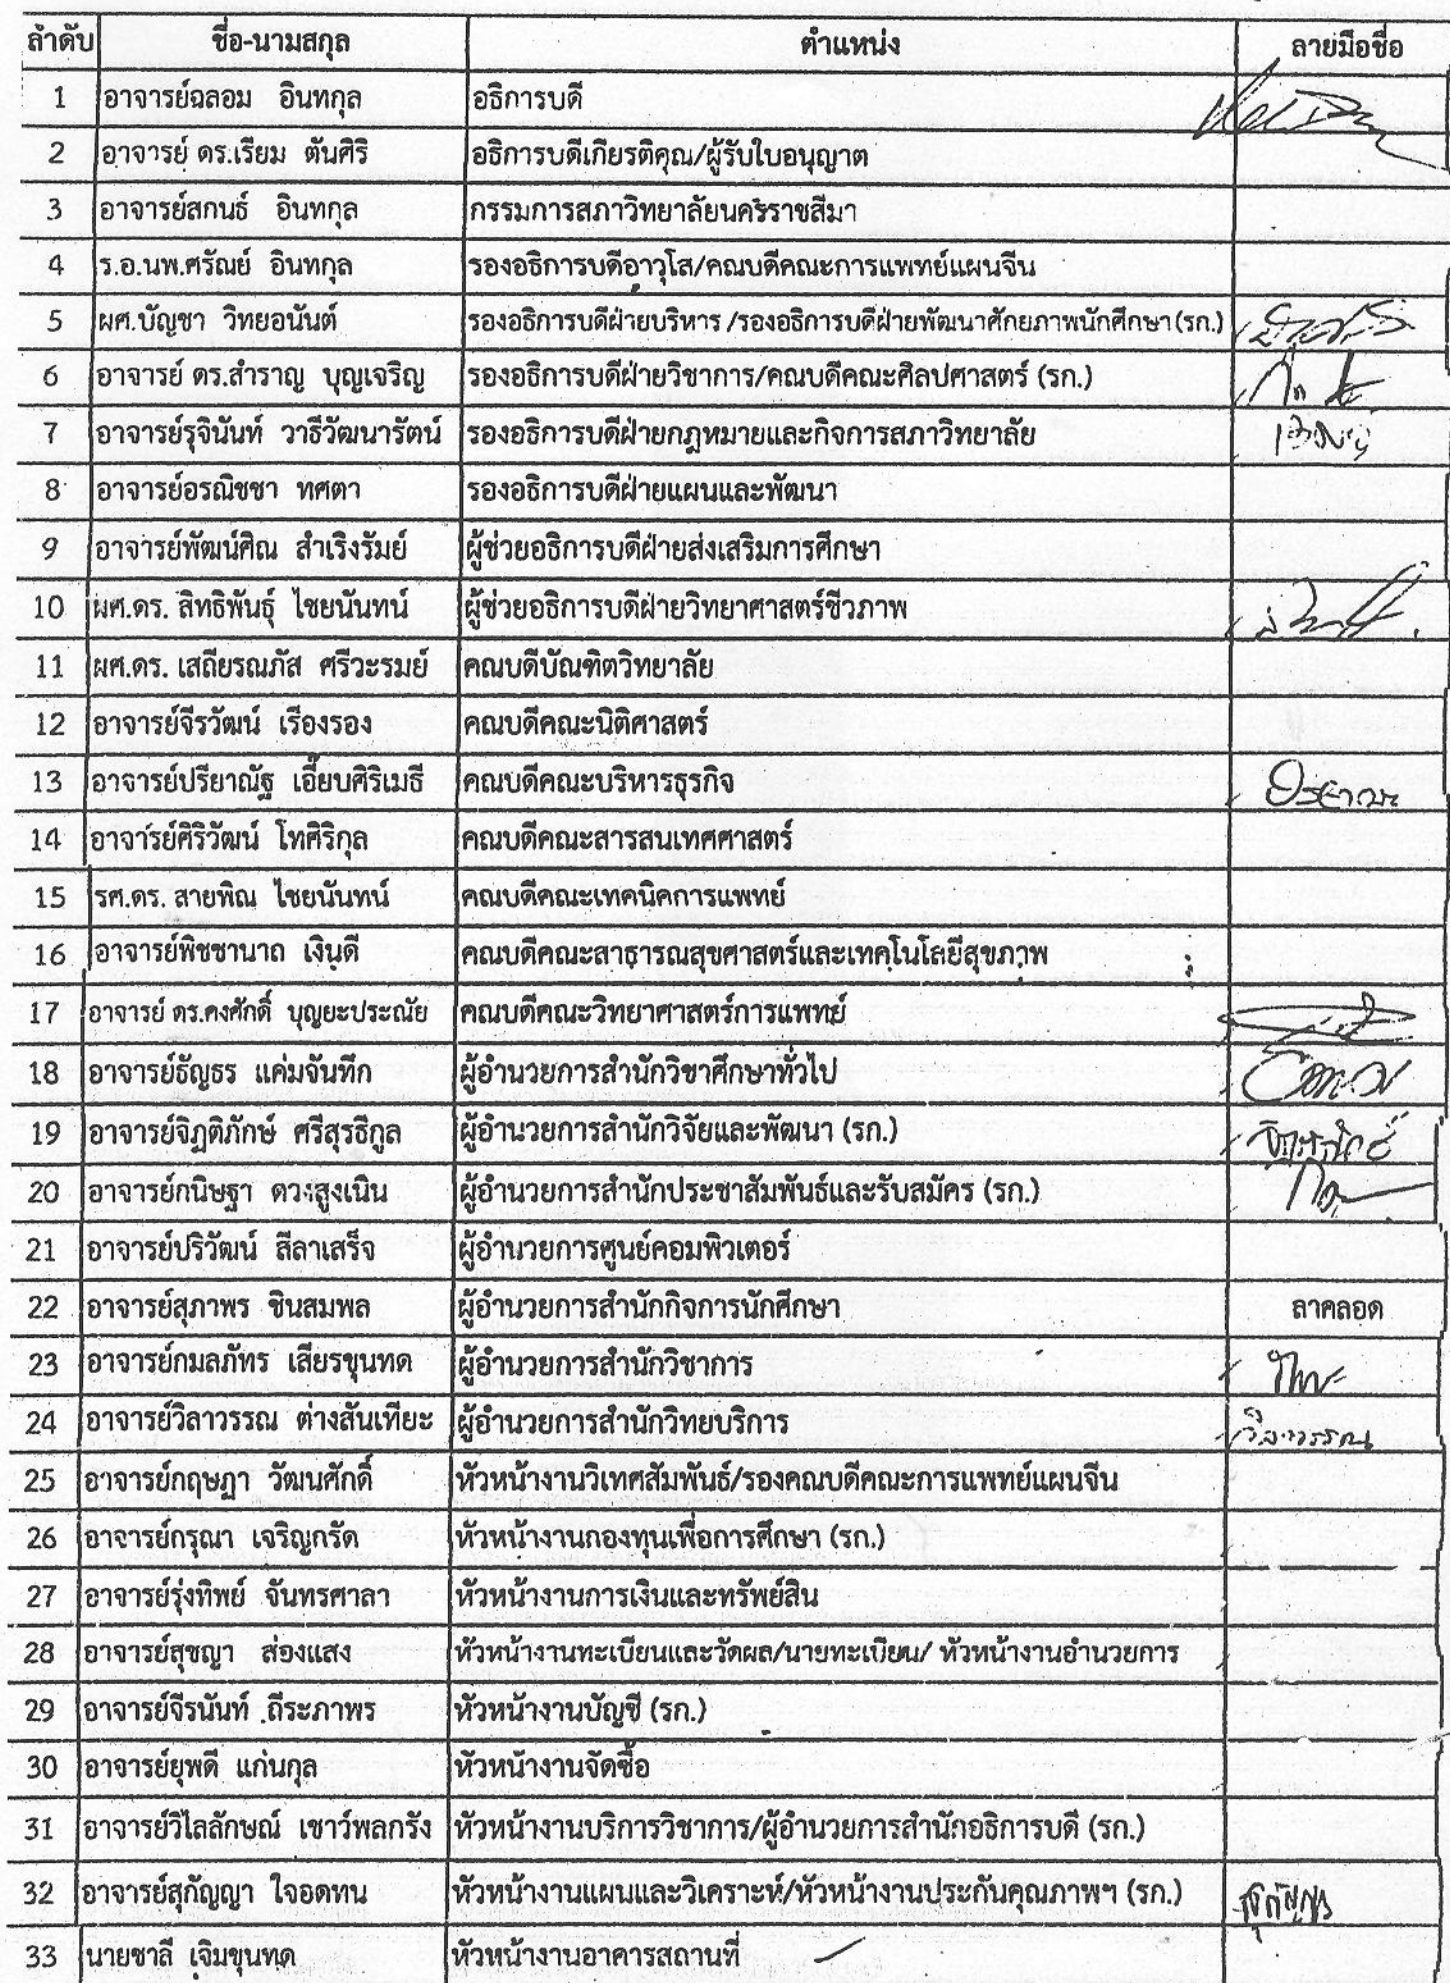 ลำดับ ชื่อ-นามสกุล ตำแหน่ง ลายมือชื่อ
1 อาจารย์ฉลอม อินทกุล อธิการบดี
2 อาจารย์ ดร.เรียม ตันศิริ อธิการบดีเกียรติคุณ/ผู้รับใบอนุญาต
3 อาจารย์สกนธ์ อินทกุล กรรมการสภาวิทยาลัยนครราชสีมา
4 ร.อ.นพ.ศรัณย์ อินทกุล รองอธิการบดีอาวุโส/คณบดีคณะการแพทย์แผนจีน
5 ผศ.บัญชา วิทยอนันต์ รองอธิการบดีฝ่ายบริหาร /รองอธิการบดีฝ่ายพัฒนาศักยภาพนักศึกษา (รก.)
6 อาจารย์ ดร.สำราญ บุญเจริญ รองอธิการบดีฝ่ายวิชาการ/คณบดีคณะศิลปศาสตร์ (รก.)
7 อาจารย์รุจินันท์ วาธีวัฒนารัตน์ รองอธิการบดีฝ่ายกฎหมายและกิจการสภาวิทยาลัย
8 อาจารย์อรณิชชา ทศตา รองอธิการบดีฝ่ายแผนและพัฒนา
9 อาจารย์พัฒน์ศิณ สำเริงรัมย์ ผู้ช่วยอธิการบดีฝ่ายส่งเสริมการศึกษา
10 ผศ.ดร. สิทธิพันธุ์ ไชยนันทน์ ผู้ช่วยอธิการบดีฝ่ายวิทยาศาสตร์ชีวภาพ
11 ผศ.ดร. เสถียรณภัส ศรีวะรมย์ คณบดีบัณฑิตวิทยาลัย
12 อาจารย์จีรวัฒน์ เรืองรอง คณบดีคณะนิติศาสตร์
13 อาจารย์ปรียาณัฐ เอี๊ยบศิริเมธี คณบดีคณะบริหารธุรกิจ
14 อาจารย์ศิริวัฒน์ โทศิริกุล คณบดีคณะสารสนเทศศาสตร์
15 รศ.ดร. สายพิณ ไชยนันทน์ คณบดีคณะเทคนิคการแพทย์
16 อาจารย์พิชชานาถ เงินดี คณบดีคณะสาธารณสุขศาสตร์และเทคโนโลยีสุขภาพ
17 อาจารย์ ดร.คงศักดิ์ บุญยะประณัย คณบดีคณะวิทยาศาสตร์การแพทย์
18 อาจารย์ธัญธร แค่มจันทึก ผู้อำนวยการสำนักวิชาศึกษาทั่วไป
19 อาจารย์จิฏติภักษ์ ศรีสุรธีกูล ผู้อำนวยการสำนักวิจัยและพัฒนา (รก.)
20 อาจารย์กนิษฐา ดวงสูงเนิน ผู้อำนวยการสำนักประชาสัมพันธ์และรับสมัคร (รก.)
21 อาจารย์ปริวัฒน์ ลีลาเสร็จ ผู้อำนวยการศูนย์คอมพิวเตอร์
22 อาจารย์สุภาพร ชินสมพล ผู้อำนวยการสำนักกิจการนักศึกษา ลาคลอด
23 อาจารย์กมลภัทร เสียรขุนทด ผู้อำนวยการสำนักวิชาการ
24 อาจารย์วิลาวรรณ ต่างสันเทียะ ผู้อำนวยการสำนักวิทยบริการ วิลาวรรณ
25 อาจารย์กฤษฎา วัฒนศักดิ์ หัวหน้างานวิเทศสัมพันธ์/รองคณบดีคณะการแพทย์แผนจีน
26 อาจารย์กรุณา เจริญกรัด หัวหน้างานกองทุนเพื่อการศึกษา (รก.)
27 อาจารย์รุ่งทิพย์ จันทรศาลา หัวหน้างานการเงินและทรัพย์สิน
28 อาจารย์สุชญา ส่องแสง หัวหน้างานทะเบียนและวัดผล/นายทะเบียน/ หัวหน้างานอำนวยการ
29 อาจารย์จีรนันท์ ถีระภาพร หัวหน้างานบัญชี (รก.)
30 อาจารย์ยุพดี แก่นกุล หัวหน้างานจัดซื้อ
31 อาจารย์วิไลลักษณ์ เชาว์พลกรัง หัวหน้างานบริการวิชาการ/ผู้อำนวยการสำนักอธิการบดี (รก.)
32 อาจารย์สุกัญญา ใจอดทน หัวหน้างานแผนและวิเคราะห์/หัวหน้างานประกันคุณภาพฯ (รก.) สุกัญญา
33 นายชาลี เจิมขุนทด หัวหน้างานอาคารสถานที่